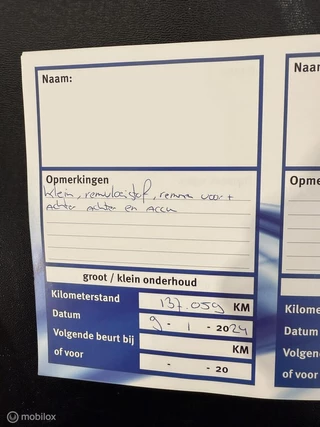 Naam:
Naar
Opmerkingen
Opme
klein, remvloeistof, remmen voor +
achter achter en Accu
groot / klein onderhoud
Kilometerstand 137.059 KM
Kilome
Datum 9 - 1 - 2024
Datum
Volgende beurt bij KM
Volgen
of voor - - 20
of voor
mobilox